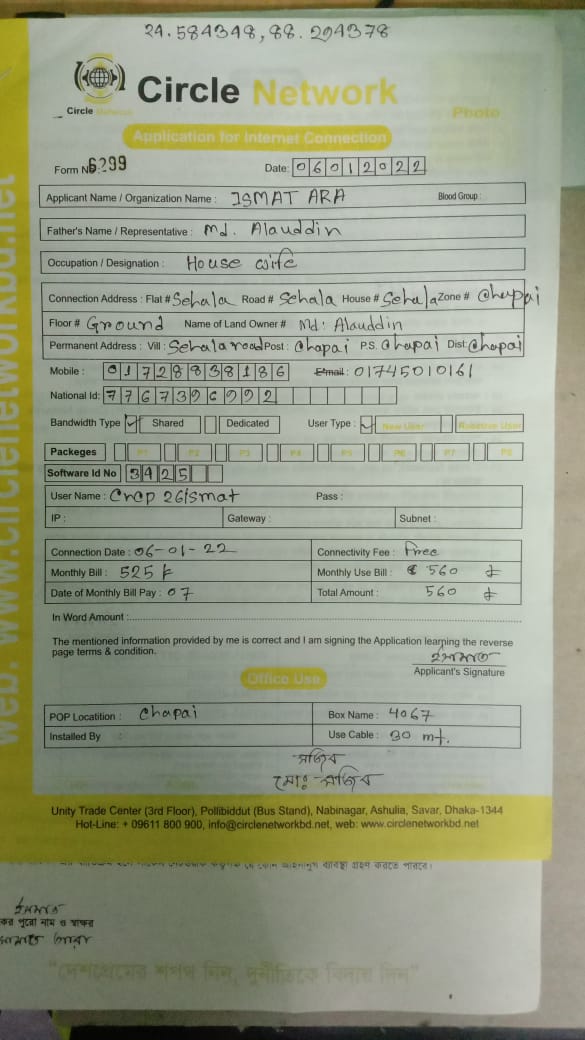 24.584348,88.294378
Circle Network
Circle Network
Photo
Application for Internet Connection
Form No 6299
Date: 06012022
Applicant Name / Organization Name : ISMAT ARA Blood Group :
Father's Name / Representative : Md. Alauddin
Occupation / Designation : House wife
Connection Address : Flat # Sehala Road # Sehala House # Sehala Zone # Chapai
Floor # Ground Name of Land Owner # Md. Alauddin
Permanent Address : Vill : Sehala road Post : Chapai P.S. Chapai Dist: Chapai
Mobile : 01728938186 E-mail : 01745010161
National Id: 7767396992
Bandwidth Type Shared Dedicated User Type : New User Reactive User
Packeges P1 P2 P3 P4 P5 P6 P7 P8
Software Id No 3425
User Name : Pass :
IP : Gateway : Subnet :
Connection Date : 06-01-22 Connectivity Fee : Free
Monthly Bill : 525 Monthly Use Bill : 560
Date of Monthly Bill Pay : 07 Total Amount : 560
In Word Amount :
The mentioned information provided by me is correct and I am signing the Application learning the reverse
page terms & condition.
ইসমাত
Applicant's Signature
Office Use
POP Locatition : Chapai Box Name : 4067
Installed By : Use Cable : 30 mt.
সজিব
মোঃ সজিব
Unity Trade Center (3rd Floor), Pollibiddut (Bus Stand), Nabinagar, Ashulia, Savar, Dhaka-1344
Hot-Line: + 09611 800 900, info@circlenetworkbd.net, web: www.circlenetworkbd.net
web: www.circlenetworkbd.net
করতে পারবে।
ইসমাত
পুরো নাম ও স্বাক্ষর
"দেশপ্রেমের শপথ নিন, দুর্নীতিকে বিদায় দিন"